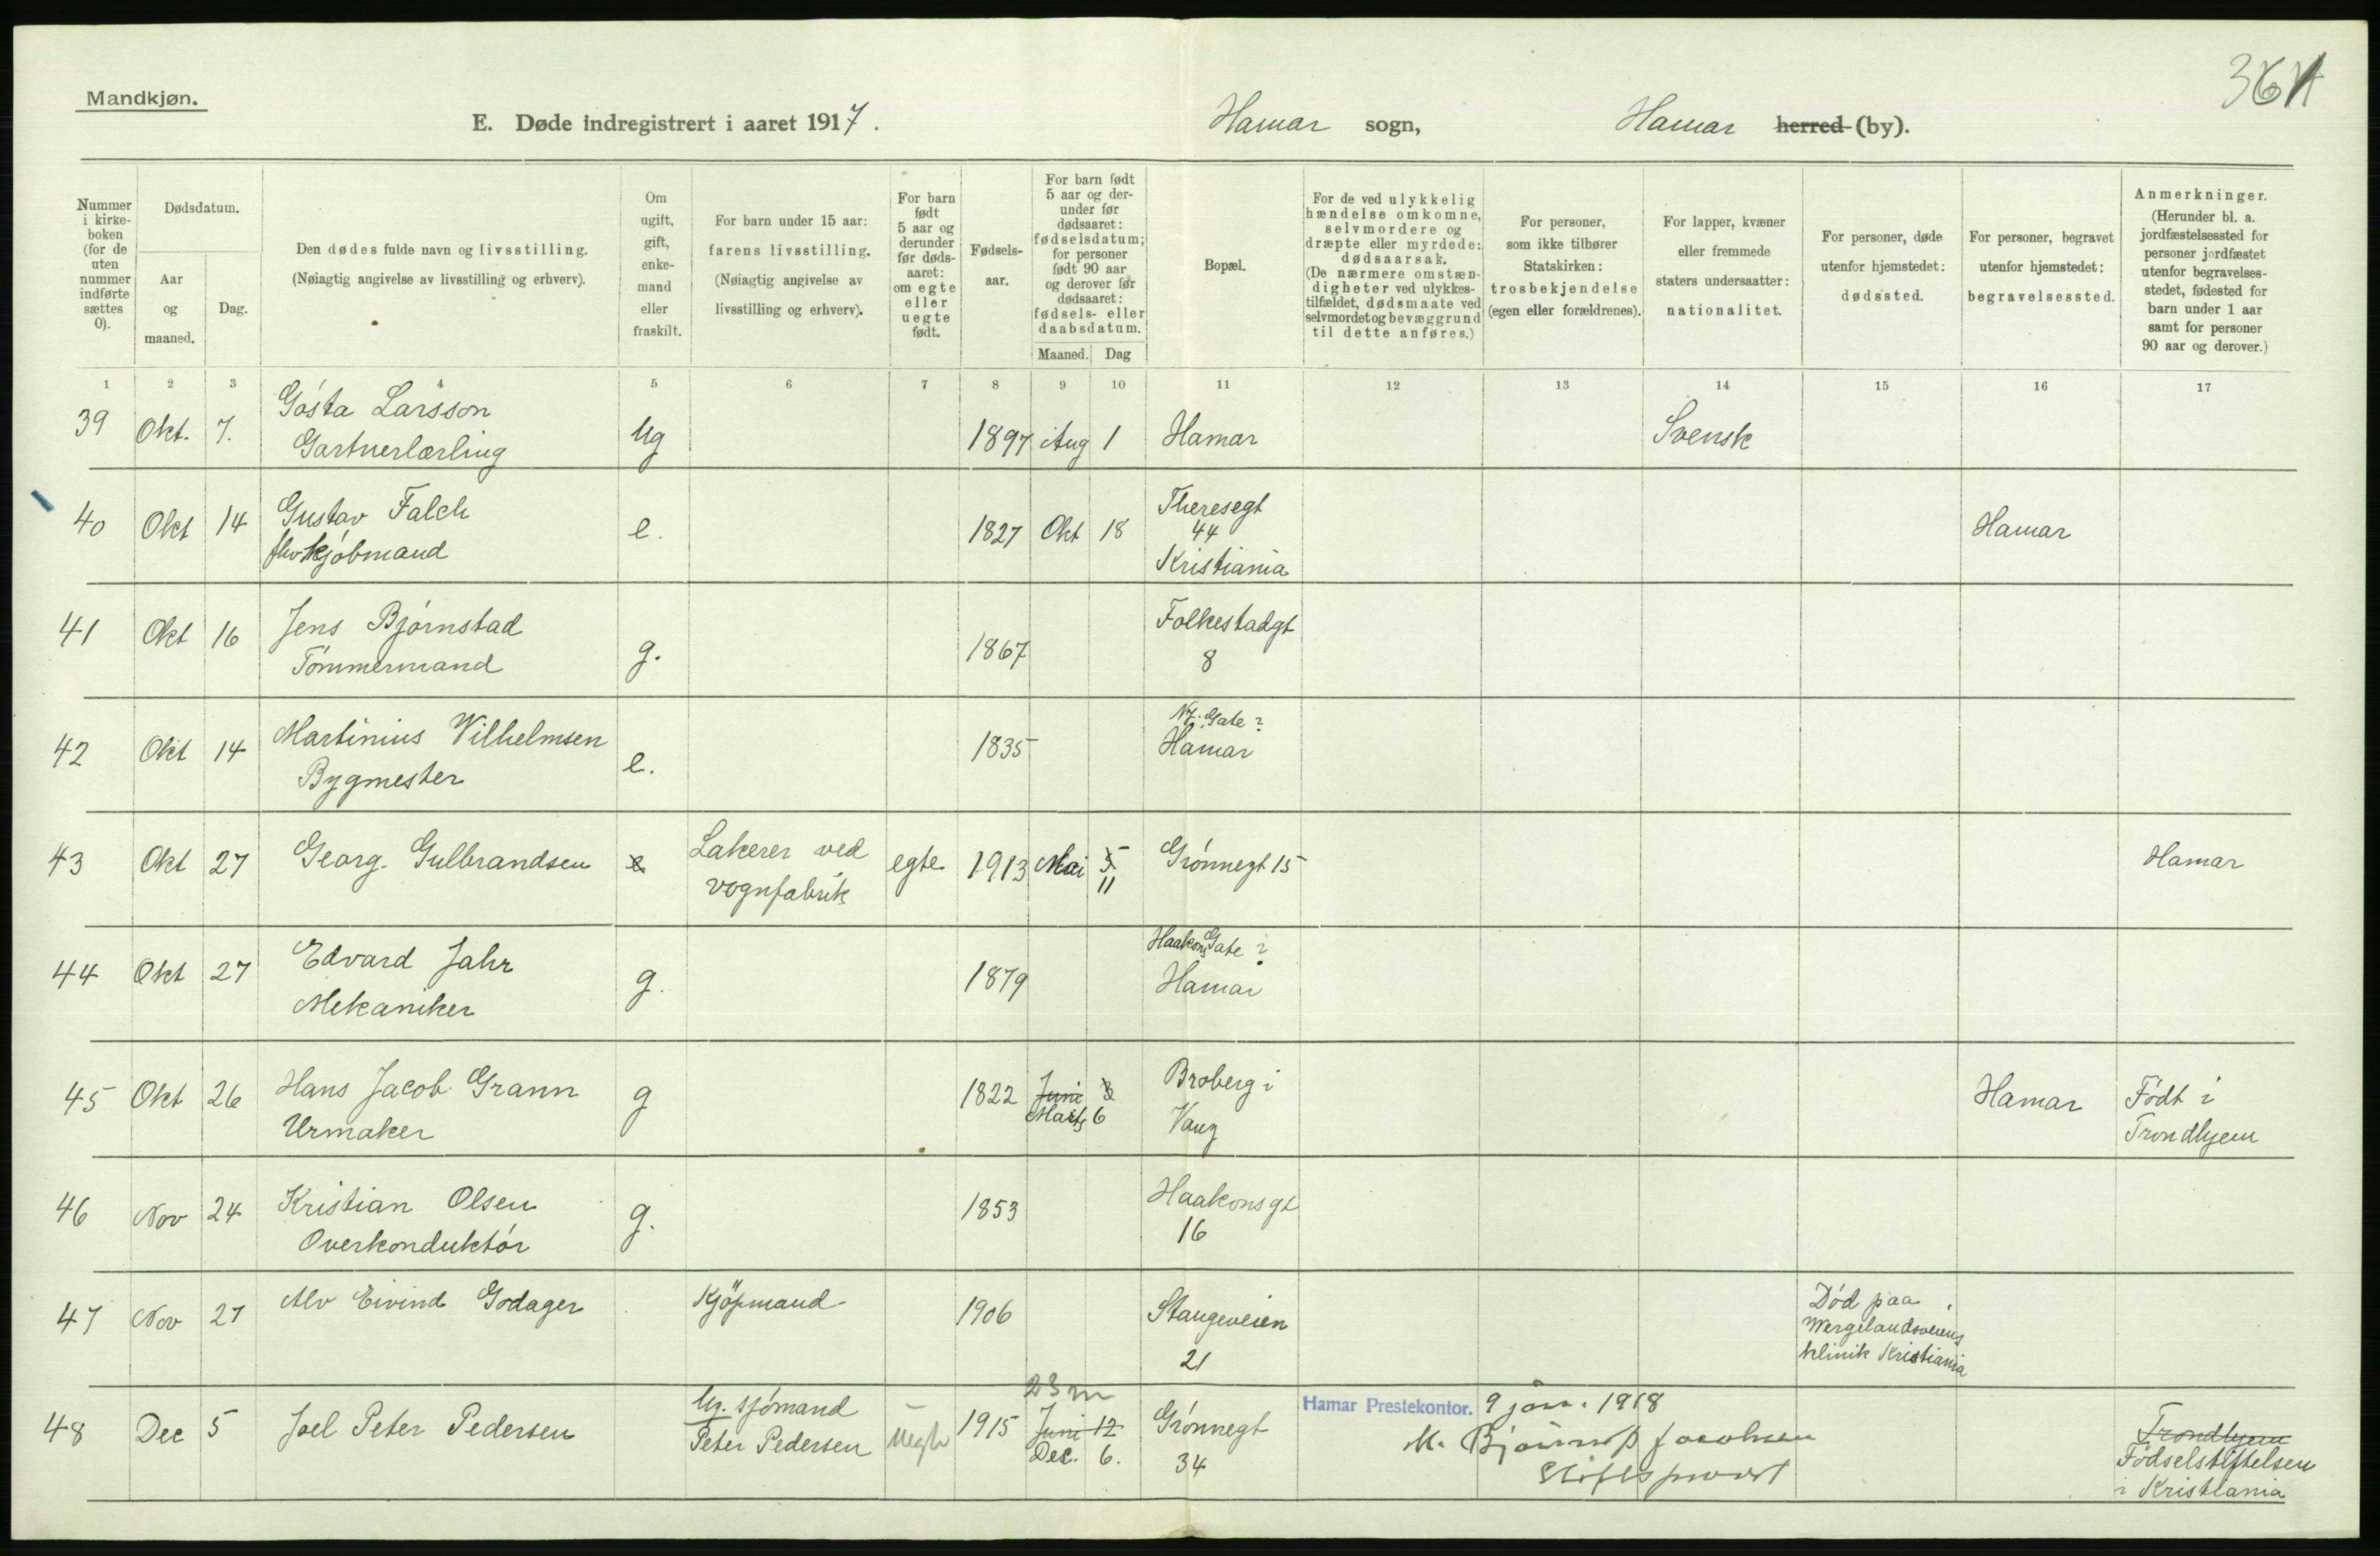 Mandkjøn.
E. Døde indregistrert i aaret 1917.
Hamar sogn,
Hamar herred (by).
Nummer i kirke-boken (for de uten nummer indførte sættes 0).
Dødsdatum.
Aar og maaned.
Dag.
Den dødes fulde navn og livsstilling.
(Nøiagtig angivelse av livsstilling og erhverv).
Om ugift, gift, enke-mand eller fraskilt.
For barn under 15 aar: farens livsstilling.
(Nøiagtig angivelse av livsstilling og erhverv).
For barn født 5 aar og derunder før døds-aaret: om egte eller uegte født.
Fødsels-aar.
For barn født 5 aar og der-under før dødsaaret: fødselsdatum; for personer født 90 aar og derover før dødsaaret: fødsels- eller daabsdatum.
Maaned.
Dag
Bopæl.
For de ved ulykkelig hændelse omkomne, selvmordere og dræpte eller myrdede: dødsaarsak.
(De nærmere omstæn-digheter ved ulykkes-tilfældet, dødsmaate ved selvmordet og bevæggrund til dette anføres.)
For personer, som ikke tilhører Statskirken: trosbekjendelse (egen eller forældrenes).
For lapper, kvæner eller fremmede staters undersaatter: nationalitet.
For personer, døde utenfor hjemstedet: dødssted.
For personer, begravet utenfor hjemstedet: begravelsessted.
Anmerkninger.
(Herunder bl. a. jordfæstelsessted for personer jordfæstet utenfor begravelses-stedet, fødested for barn under 1 aar samt for personer 90 aar og derover.)
1 2 3 4 5 6 7 8 9 10 11 12 13 14 15 16 17
39 Okt. 7. Gósta Larsson
Gartnerlærling Ug 1897 Aug 1 Hamar Svensk
40 Okt 14 Gustav Falch
fhv kjóbmand e. 1827 Okt 18 Theresegt
44
Kristiania Hamar
41 Okt 16 Jens Bjórnstad
Tómmermand g. 1867 Folkestadgt
8
42 Okt 14 Martinius Vilhelmsen
Bygmester e. 1835 Ny. Gate ?
Hamar
43 Okt 27 Georg Gulbrandsen e Lakerer ved
vognfabrik egte 1913 Mai 5
11 Grónnegt 15 Hamar
44 Okt 27 Edvard Jahr
Mekaniker g. 1879 Haakons Gate ?
Hamar
45 Okt 26 Hans Jacob Grann
Urmaker g 1822 Juni 3
Marts 6 Broberg i
Vang Hamar Fódt i
Trondhjem
46 Nov 24 Kristian Olsen
Overkonduktór g. 1853 Haakonsgt
16
47 Nov 27 Alv Eivind Godager Kjöpmand 1906 Stangeveien
21 Dód paa
Wergelandsveiens
klinik Kristiania
48 Dec 5 Joel Peter Pedersen Ug. sjómand
Peter Pedersen Uegte 1915 23 m
Juni 12
Dec. 6. Grónnegt
34
Hamar Prestekontor. 9 jan. 1918
Stiftsprovst
Trondhjem
Fódselstiftelsen
i Kristiania